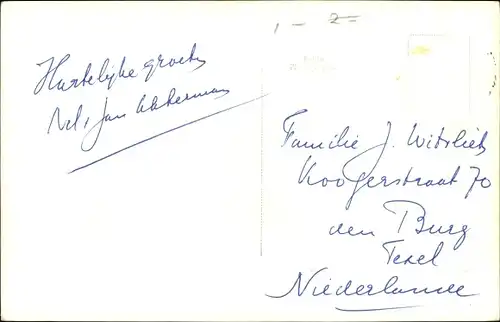 1 - 2=
Hartelijke groeten
Nel, Jan Akkerman
Familie J. Witvliet
Koogerstraat 70
den Burg
Texel
Niederlande